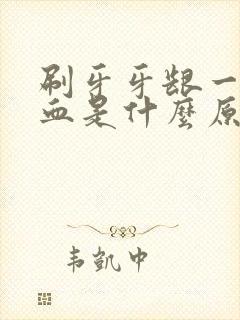 刷牙牙龈一
血是什麼原
韦凯中